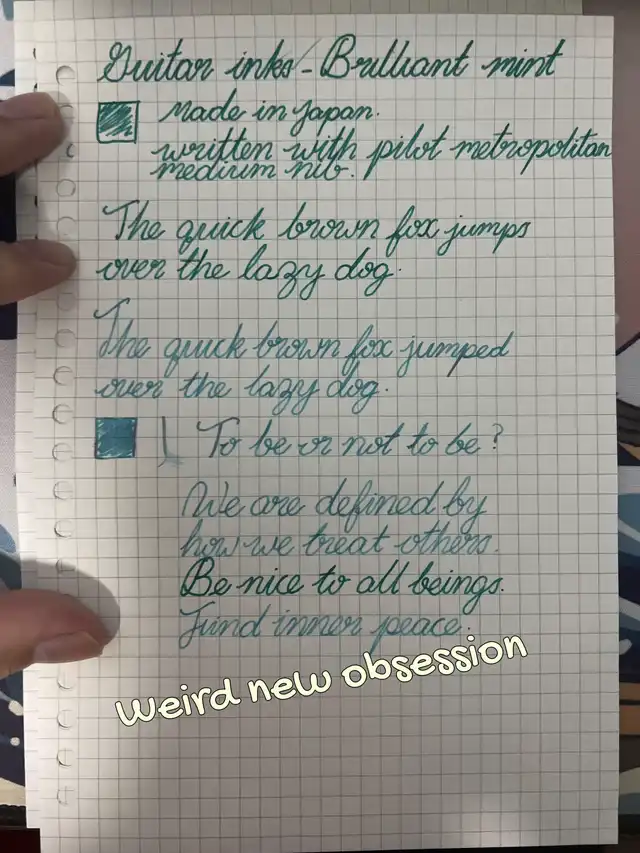 Guitar inks - Brilliant mint
Made in Japan.
written with pilot metropolitan
medium nib.
The quick brown fox jumps
over the lazy dog.
The quick brown fox jumped
over the lazy dog.
To be or not to be?
We are defined by
how we treat others.
Be nice to all beings.
Find inner peace.
Weird new obsession